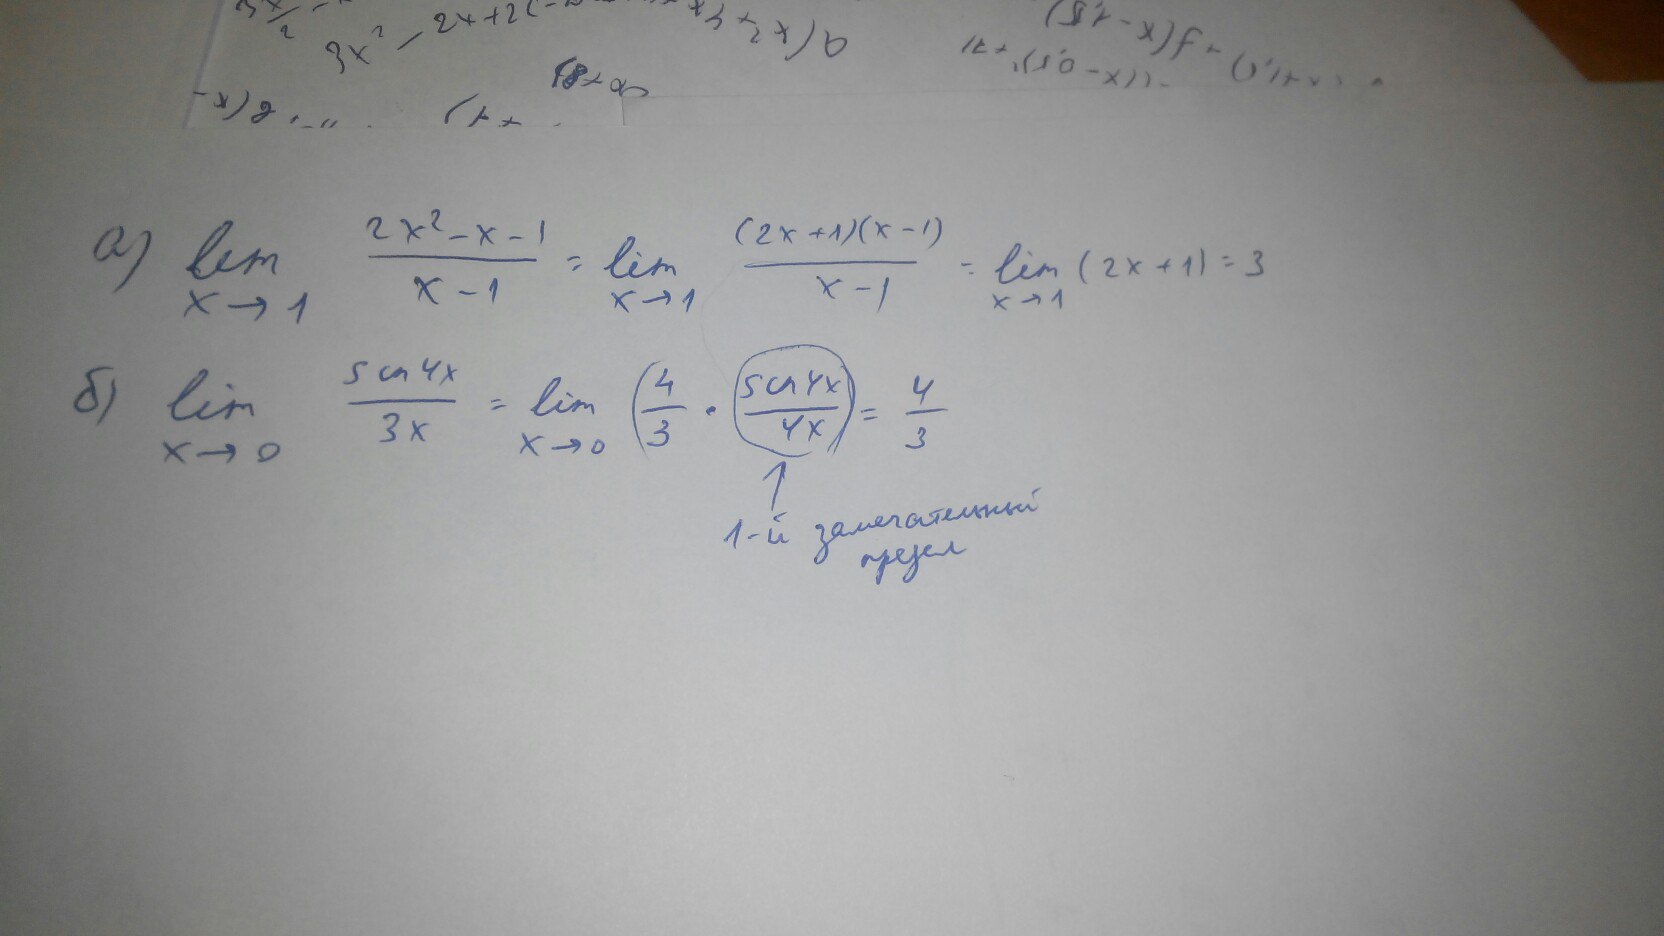 3x² - 2x+2(-
а) lim x→1 (2x²-x-1)/(x-1) = lim x→1 ((2x+1)(x-1))/(x-1) = lim x→1 (2x+1) = 3
б) lim x→0 (sin4x)/(3x) = lim x→0 (4/3 · (sin4x)/(4x)) = 4/3
↑
1-й замечательный
предел